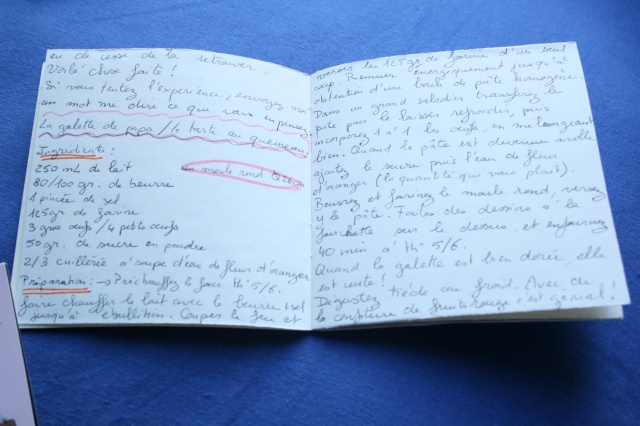 eu de cesse de la retrouver.
Voilà chose faite !
Si vous tentez l'expérience, envoyez moi
un mot me dire ce que vous en pensez.
La galette de papa / la tarte au quemeau
Ingrédients :
250 mL de lait
un moule rond
80/100 gr. de beurre
1 pincée de sel
125gr de farine
3 gros œufs / 4 petits œufs
50 gr. de sucre en poudre
2/3 cuillérée à soupe d'eau de fleur d'oranger
Préparation → Préchauffez le four th° 5/6.
Faire chauffer le lait avec le beurre + sel
jusqu'à ébullition. Coupez le feu et
verser les 125 gr de farine d'un seul
coup. Remuer énergiquement jusqu'à
obtention d'une boule de pâte homogène.
Dans un grand saladier transférez la
pâte pour la laisser refroidir, puis
incorporez 1 à 1 les œufs, en mélangeant
bien. Quand la pâte est devenue molle
ajoutez le sucre puis l'eau de fleur
d'oranger (la quantité qui vous plait).
Beurrez et farinez le moule rond, versez
y la pâte. Faites des dessins à la
fourchette sur le dessus, et enfournez
40 min à th° 5/6.
Quand la galette est bien dorée, elle
est cuite !
Dégustez tiède ou froid. Avec de
la confiture de fruits rouge, c'est génial !